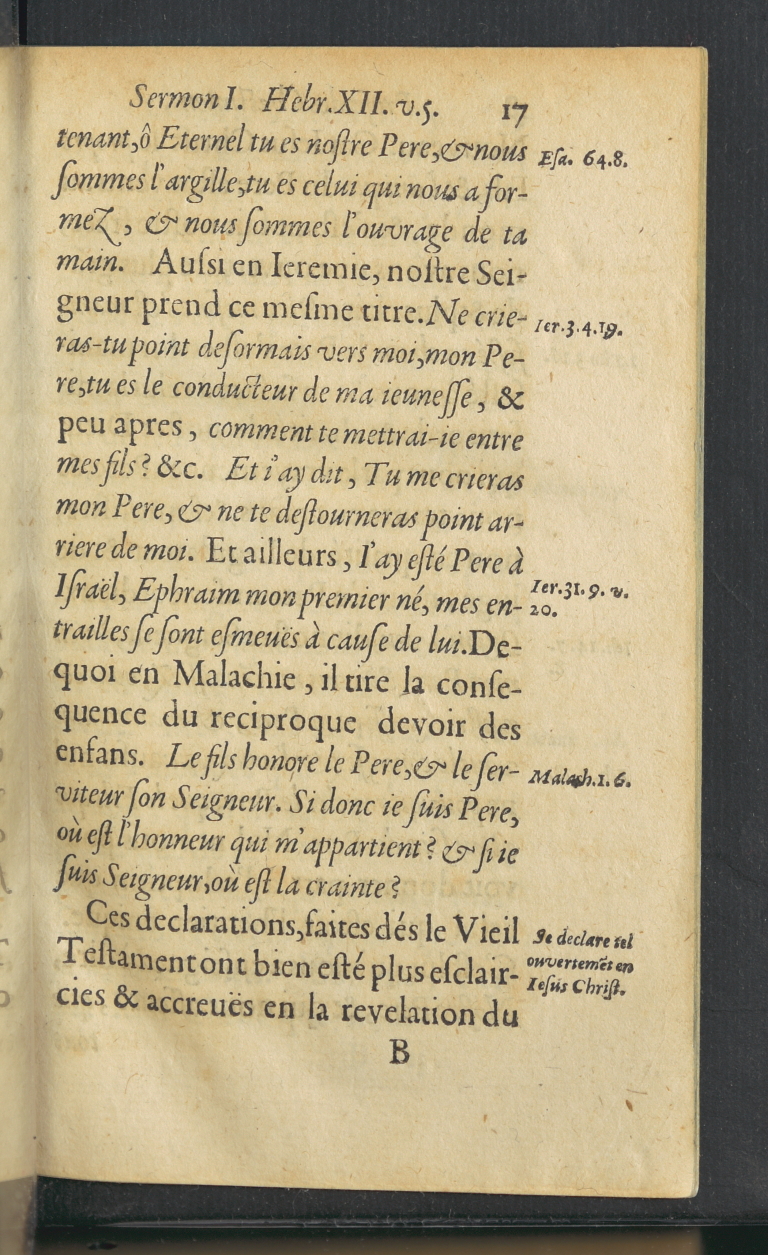 Sermon I. Hebr. XII. v.5. 17
tenant,ô Eternel tu es noſtre Pere,&nous
Eſa. 64.8.
ſommes l'argille,tu es celui qui nous a for-
mez, & nous ſommes l'ouvrage de ta
main. Auſsi en Ieremie, noſtre Sei-
gneur prend ce meſme titre. Ne crie-
Ier.3.4.19.
ras-tu point deſormais vers moi,mon Pe-
re,tu es le conducteur de ma ieuneſſe, &
peu apres, comment te mettrai-ie entre
mes fils? &c. Et i'ay dit, Tu me crieras
mon Pere, & ne te deſtourneras point ar-
riere de moi. Et ailleurs, I'ay eſté Pere à
Iſraël, Ephraim mon premier né, mes en-
Ier.31.9. v.
20.
trailles ſe ſont eſmeuës à cauſe de lui. De-
quoi en Malachie, il tire la conſe-
quence du reciproque devoir des
enfans. Le fils honore le Pere,& le ſer-
Malach.1.6.
viteur ſon Seigneur. Si donc ie ſuis Pere,
où eſt l'honneur qui m'appartient? & ſi ie
ſuis Seigneur,où eſt la crainte?
Ces declarations,faites dés le Vieil
Se declare tel
Teſtament ont bien eſté plus eſclair-
ouvertemēt en
Ieſus Chriſt.
cies & accreuës en la revelation du
B